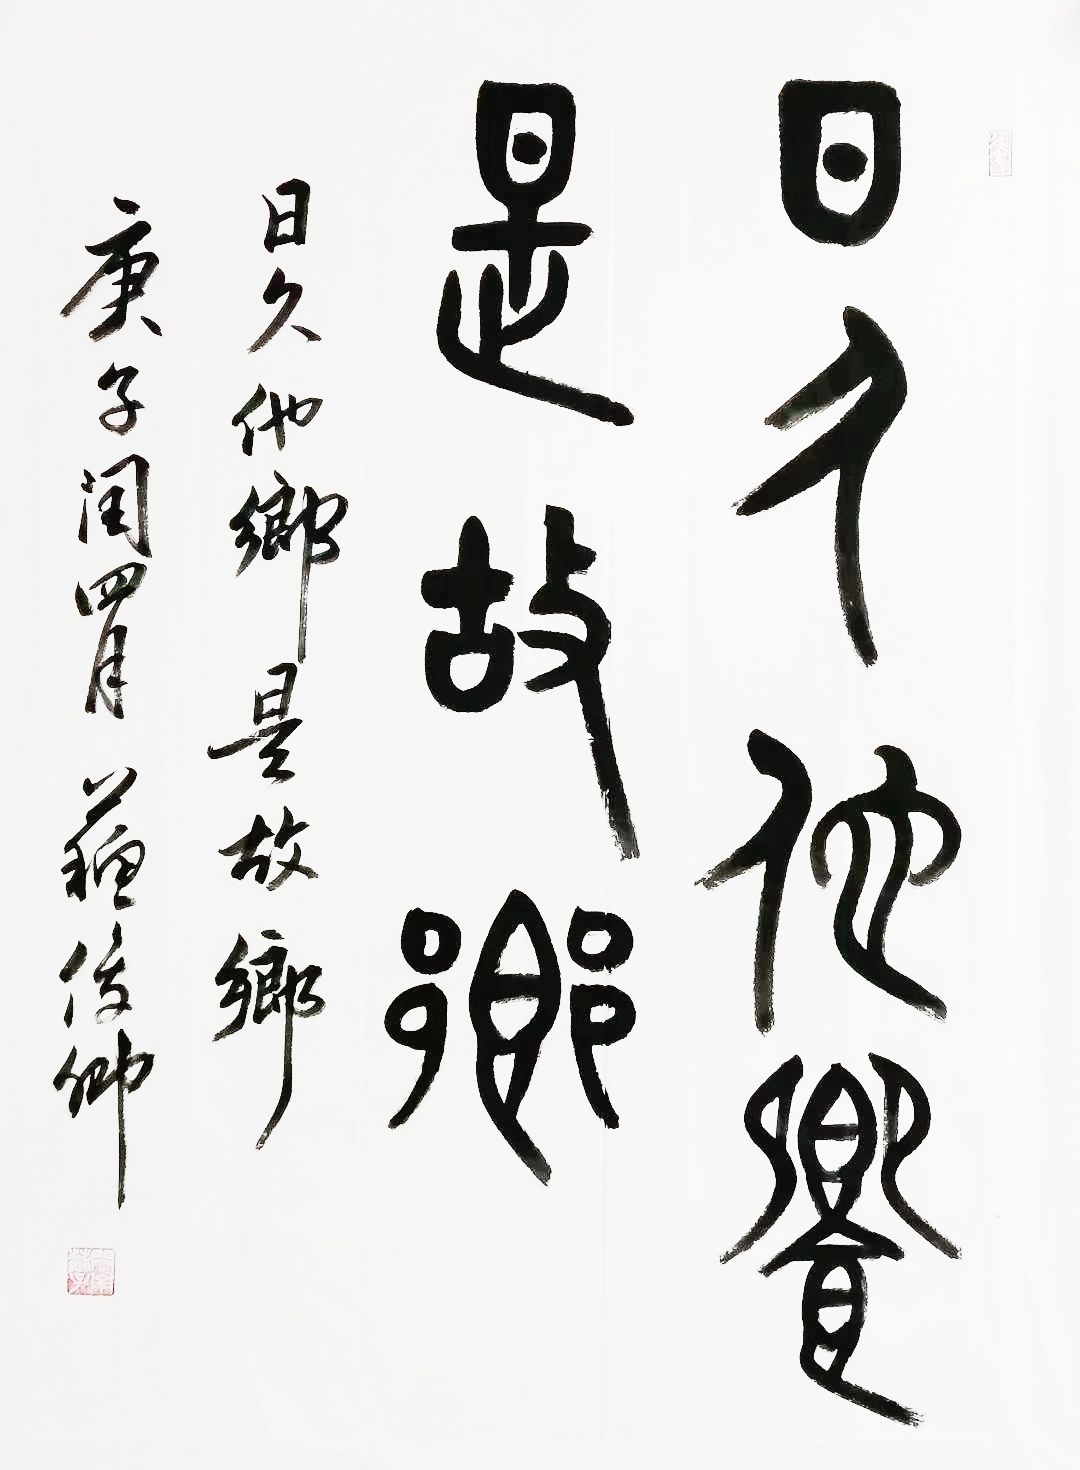 日久他饗
是故鄉
日久他鄉是故鄉
庚子闰四月 蘓俊卿